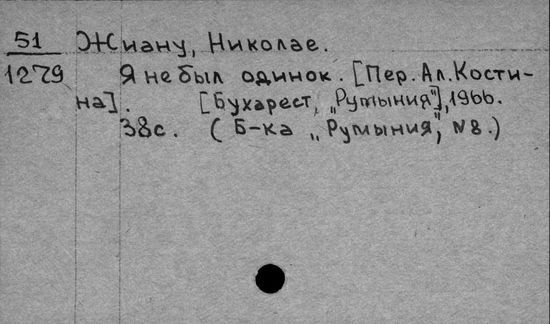 51 Жиану, Николае.
1279 Я не был одинок. [Пер. Ал. Кости-
на]. [Бухарест, „Румыния"], 1966.
38с. (Б-ка „Румыния", N8.)